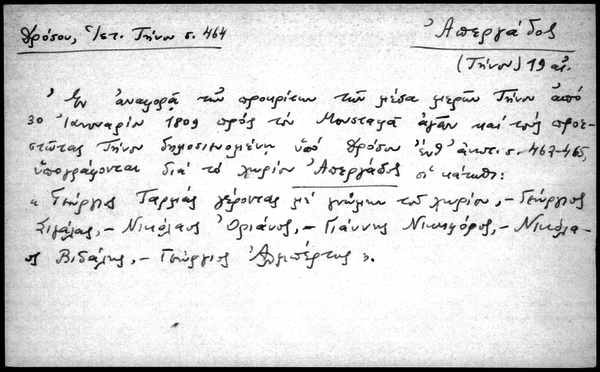 Δρόσου, Ἱστ. Τήνου σ. 464
Ἀπεργάδος
(Τήνου) 19 αἰ.
Ἐν ἀναφορᾷ τῶν προκρίτων τῶν μέσα μερῶν Τήνου ἀπό
30 Ἰανουαρίου 1809 πρός τόν Μουσταφᾶ ἀγᾶν καί τούς προε-
στῶτας Τήνου δημοσιευομένῃ ὑπό Δρόσου ἔνθ' ἀνωτ. σ. 463-465,
ὑπογράφονται διά τό χωρίον Ἀπεργάδος οἱ κάτωθι:
« Γεώργιος Γέροντας μέ γνώμην τοῦ χωρίου, – Γεώργιος
Σιγάλας, – Νικόλαος Ὀριάνος, – Γιάννης Νικηφόρος, – Νικόλα-
ος Βιδάλης, – Γεώργιος Ἀλμπέρτης ».